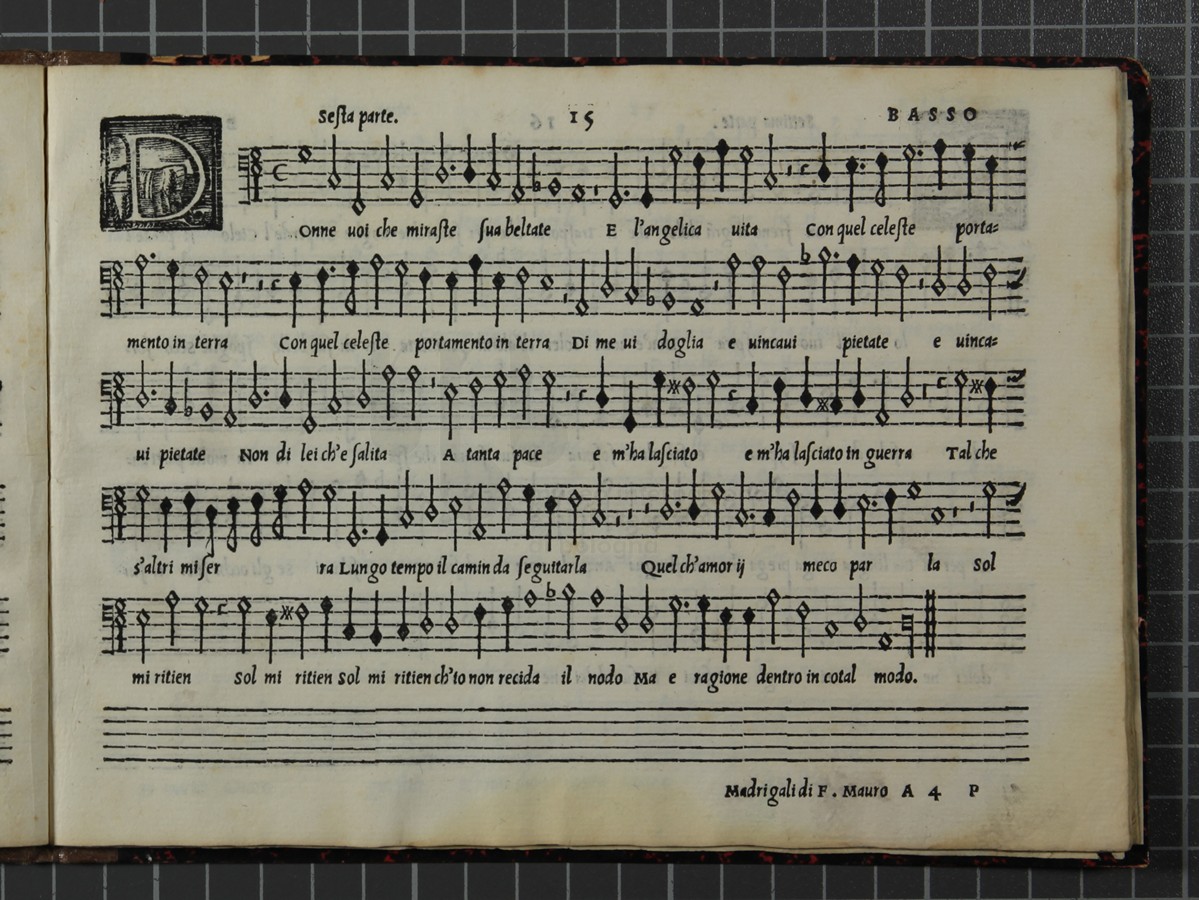 Sesta parte. 15 BASSO
DOnne uoi che miraste sua beltate E l'angelica uita Con quel celeste porta=
mento in terra Con quel celeste portamento in terra Di me ui doglia e uincaui pietate e uinca=
ui pietate Non di lei ch'e salita A tanta pace e m'ha lasciato e m'ha lasciato in guerra Tal che
s'altri mi ser ra Lungo tempo il camin da seguitarla Quel ch'amor ij meco par la Sol
mi ritien Sol mi ritien Sol mi ritien ch'io non recida il nodo Ma e ragione dentro in cotal modo.
Madrigali di F. Mauro A 4 P